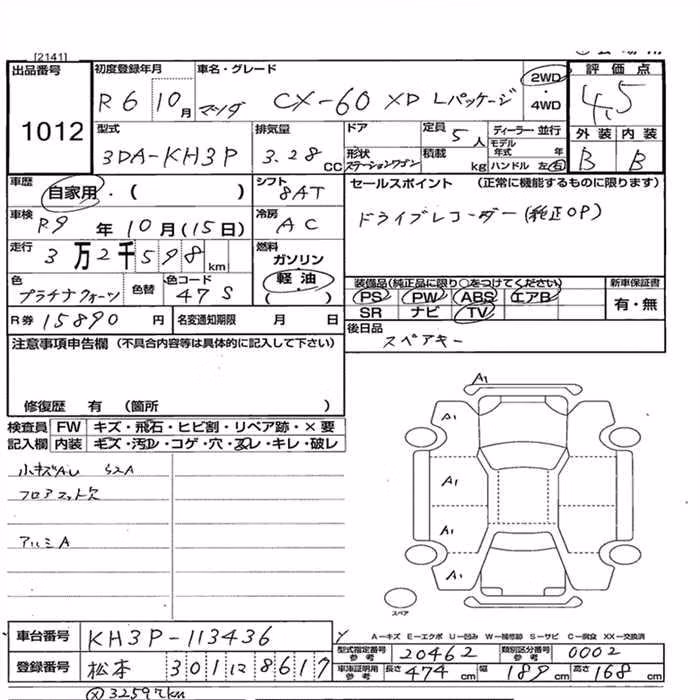 [2141]
出品番号
1012
初度登録年月
R6 10月
車名・グレード
マツダ CX-60 XD Lパッケージ
2WD
・
4WD
評価点
4.5
外装 内装
B B
型式
3DA-KH3P
排気量
3.28 CC
ドア
形状
ステーションワゴン
定員 5人
積載 kg
ディーラー・並行
モデル年式 年
ハンドル 左 右
車歴
自家用・( )
シフト
8AT
セールスポイント (正常に機能するものに限ります)
ドライブレコーダー(純正OP)
車検
R9年10月(15日)
冷房
AC
走行
3万2千598km
燃料
ガソリン
軽油
( )
色
プラチナクォーツ
色替
色コード
47S
装備品(純正品に限り○をつけてください)
PS PW ABS エアB
SR ナビ TV
新車保証書
有・無
R券 15890円
名変通知期限 月 日
後日品
スペアキー
注意事項申告欄 (不具合内容等は具体的に記入して下さい)
修復歴 有 (箇所 )
検査員
記入欄
FW キズ・飛石・ヒビ割・リペア跡・×要
内装 キズ・汚レ・コゲ・穴・スレ・キレ・破レ
小キズAU S2A
フロアマット欠
アルミA
A1
A1
A1
A1
A1
スペア
A-キズ E-エクボ U-凹み W-補修跡 S-サビ C-腐食 XX-交換済
車台番号
KH3P-113436
型式指定番号
参考
20462
類別区分番号
参考
0002
登録番号
松本 301 に 8617
車庫証明用
参考
長さ 474 cm 幅 189 cm 高さ 168 cm
32597km